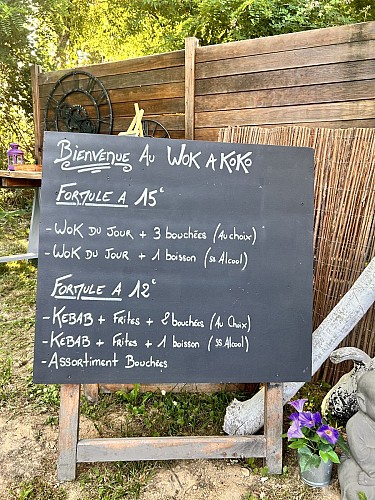 Bienvenue Au Wok A Koko
Formule A 15€
- Wok du Jour + 3 bouchées (Au choix)
- Wok du Jour + 1 boisson (ss Alcool)
Formule A 12€
- Kebab + Frites + 2 bouchées (Au Choix)
- Kebab + Frites + 1 boisson (ss Alcool)
- Assortiment Bouchées